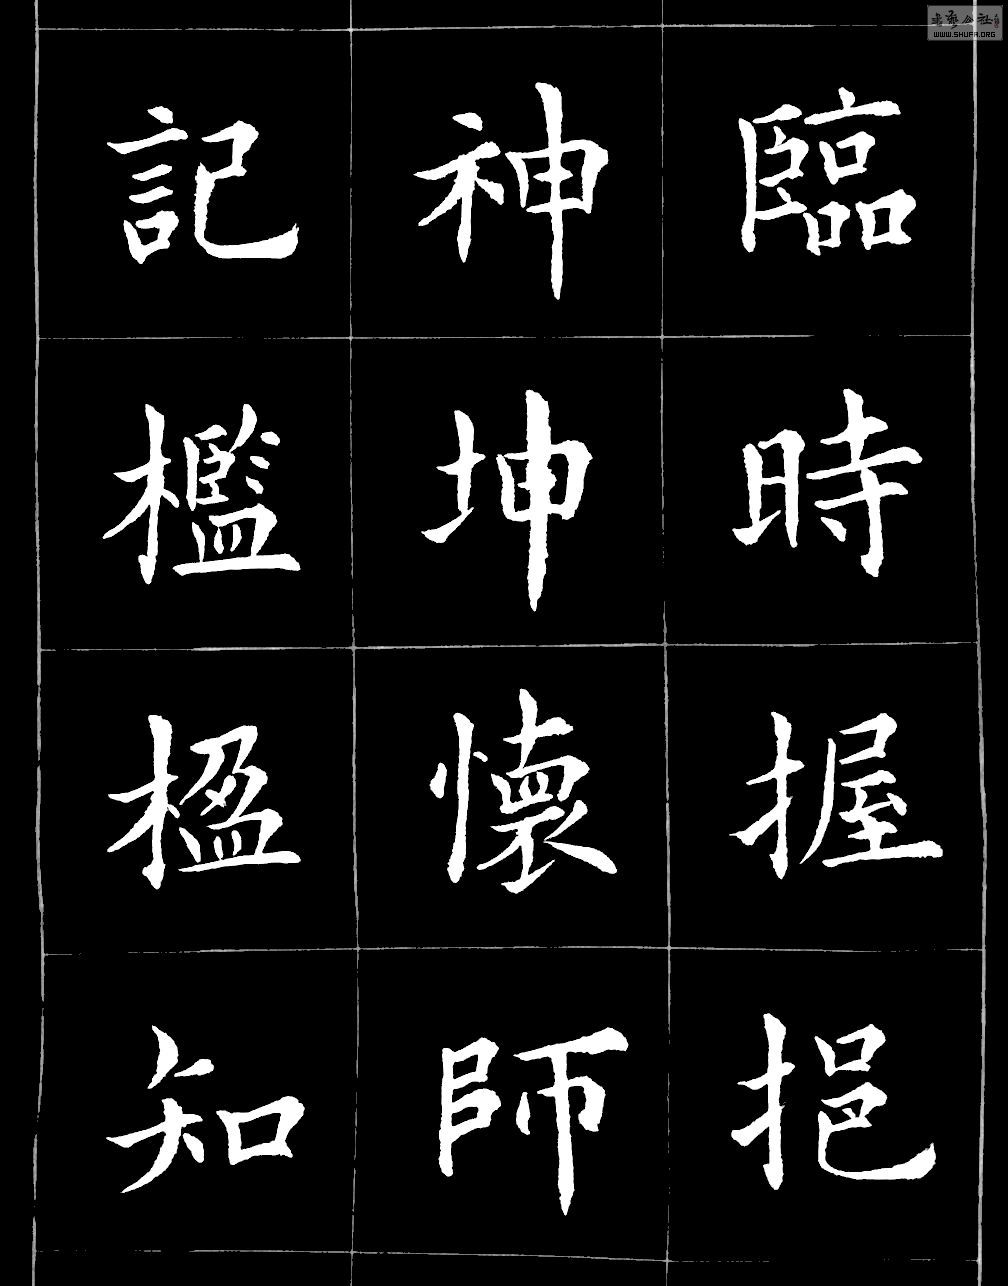 臨時握挹
神坤懷師
記檻楹知
書藝公社
WWW.SHUFA.ORG